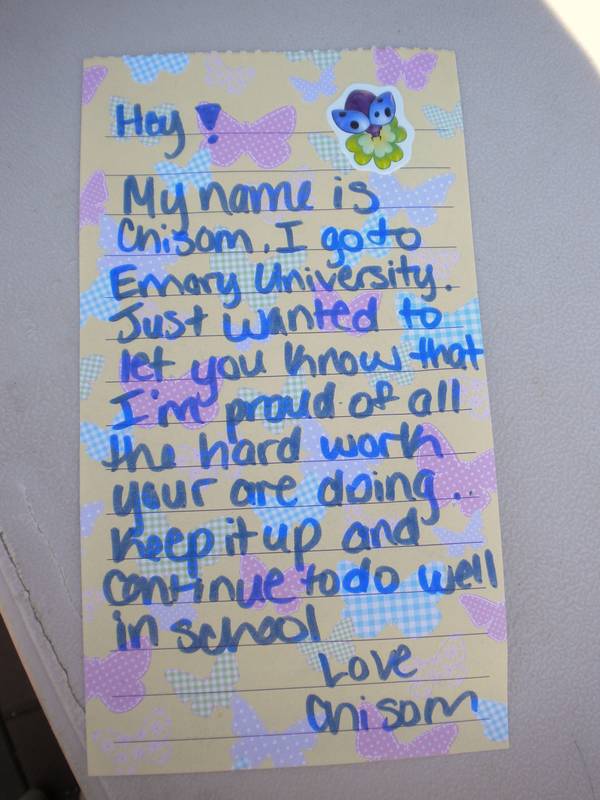 Hey!
My name is
Chisom. I go to
Emory University.
Just wanted to
let you know that
I'm proud of all
the hard work
your are doing..
Keep it up and
continue to do well
in school
Love
Chisom